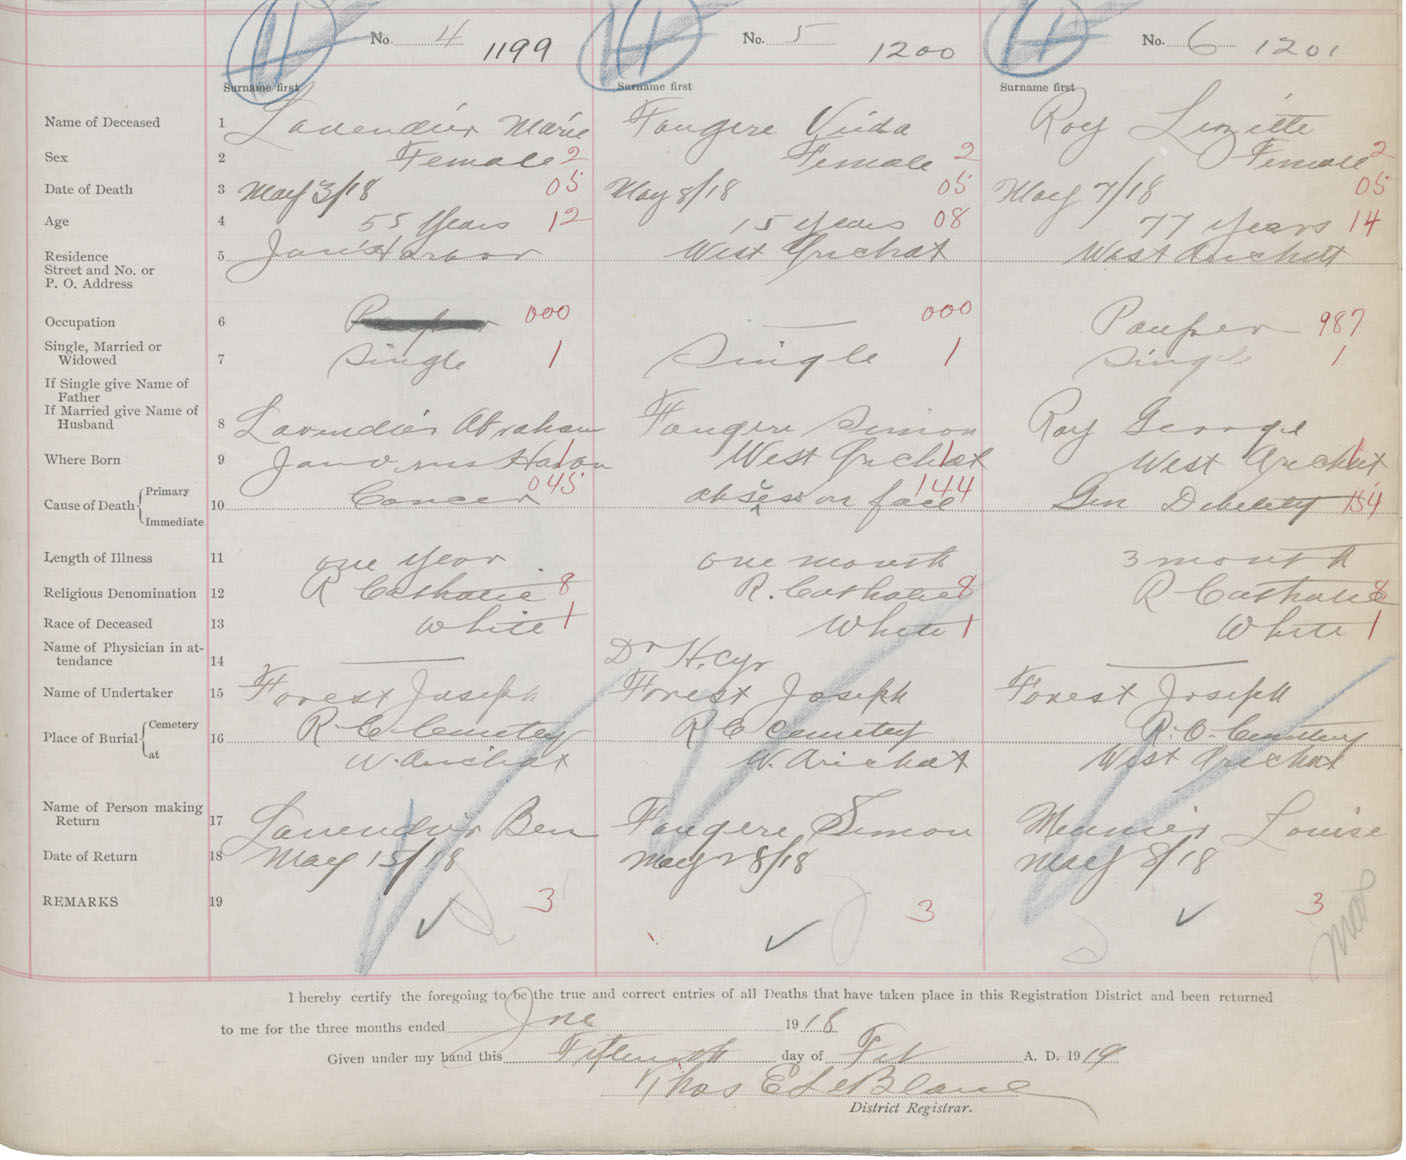 No. 4 1199 No. 5 1200 No. 6 1201
Surname first Surname first Surname first
Name of Deceased 1 Lavendier Marie Fougere Vida Roy Lizette
Sex 2 Female 2 Female 2 Female 2
Date of Death 3 May 3/18 05 May 8/18 05 May 7/18 05
Age 4 55 Years 12 15 years 08 77 years 14
Residence
Street and No. or
P. O. Address
5 Harbor West Arichat West Arichatt
Occupation 6 Pauper 000 — 000 Pauper 987
Single, Married or
Widowed 7 Single 1 Single 1 Single 1
If Single give Name of
Father
If Married give Name of
Husband 8 Lavendier Abraham Fougere Simon Roy George
Where Born 9 1 West Arichat 1 West Arichat 1
Cause of Death { Primary Immediate 10 Cancer 045 abscess on face 144 Gen Debility 154
Length of Illness 11 one year one month 3 month
Religious Denomination 12 R Catholic 8 R. Catholic 8 R Catholic 8
Race of Deceased 13 White 1 White 1 White 1
Name of Physician in at-
tendance 14 — Dr H. Cyr —
Name of Undertaker 15 Forest Joseph Forest Joseph Forest Joseph
Place of Burial { Cemetery at 16 R. C Cemetery R C Cemetery R. C. Cemetery
W. Arichat W. Arichat West Arichat
Name of Person making
Return 17 Lavendier Ben Fougere, Simon Meunier Louise
Date of Return 18 May 15/18 May 28/18 May 8/18
REMARKS 19 3 3 3
I hereby certify the foregoing to be the true and correct entries of all Deaths that have taken place in this Registration District and been returned
to me for the three months ended Jne 1918
Given under my hand this Fifteenth day of Feb A. D. 1919
Thos E LeBlanc
District Registrar.